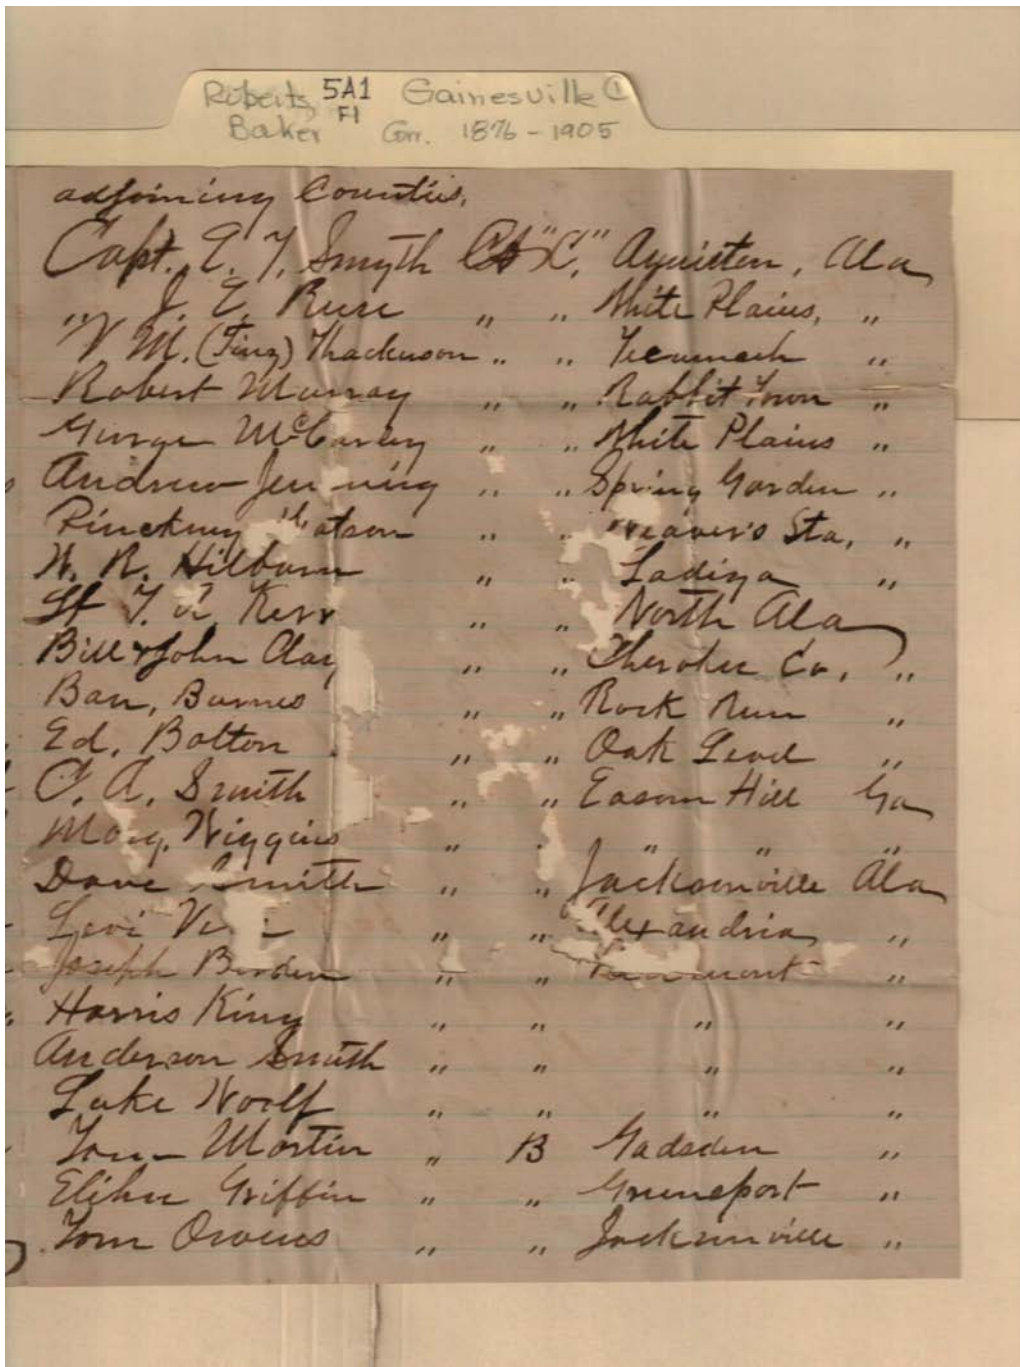 Roberts 5A1 Gainesville
Baker F1 Corr. 1876 - 1905
adjoining Counties.
Capt. E. T. Smyth Co "C," Aniston, Ala
,, J. E. Ruse ,, ,, White Plains, ,,
V M. (Tinz) Thackerson ,, ,, Tecumach ,,
Robert Murray ,, ,, Rabbit Town ,,
George McCarley ,, ,, White Plains ,,
Andrew Jenning ,, ,, Spring Garden ,,
Pinckney Watson ,, ,, Weaver's Sta, ,,
W. R. Hilburn ,, ,, Ladiga ,,
Lt T. Kerr ,, ,, North Ala
Bill & John Clay ,, ,, Cherokee Co, ,,
Ban, Barnes ,, ,, Rock Run ,,
Ed, Bolton ,, ,, Oak Level ,,
C. A. Smith ,, ,, Easom Hill Ga
Wiggins ,, ,, ,, ,, ,,
Dave Smith ,, ,, Jacksonville Ala
Levi ,, ,, Alexandria ,,
Joseph Borden ,, ,, ,,
Harris King ,, ,, ,, ,,
Anderson Smith ,, ,, ,, ,,
Luke Woolf ,, ,, ,, ,,
Tom Martin ,, B Gadsden ,,
Elihu Griffin ,, ,, Greensport ,,
Tom Owens ,, ,, Jacksonville ,,